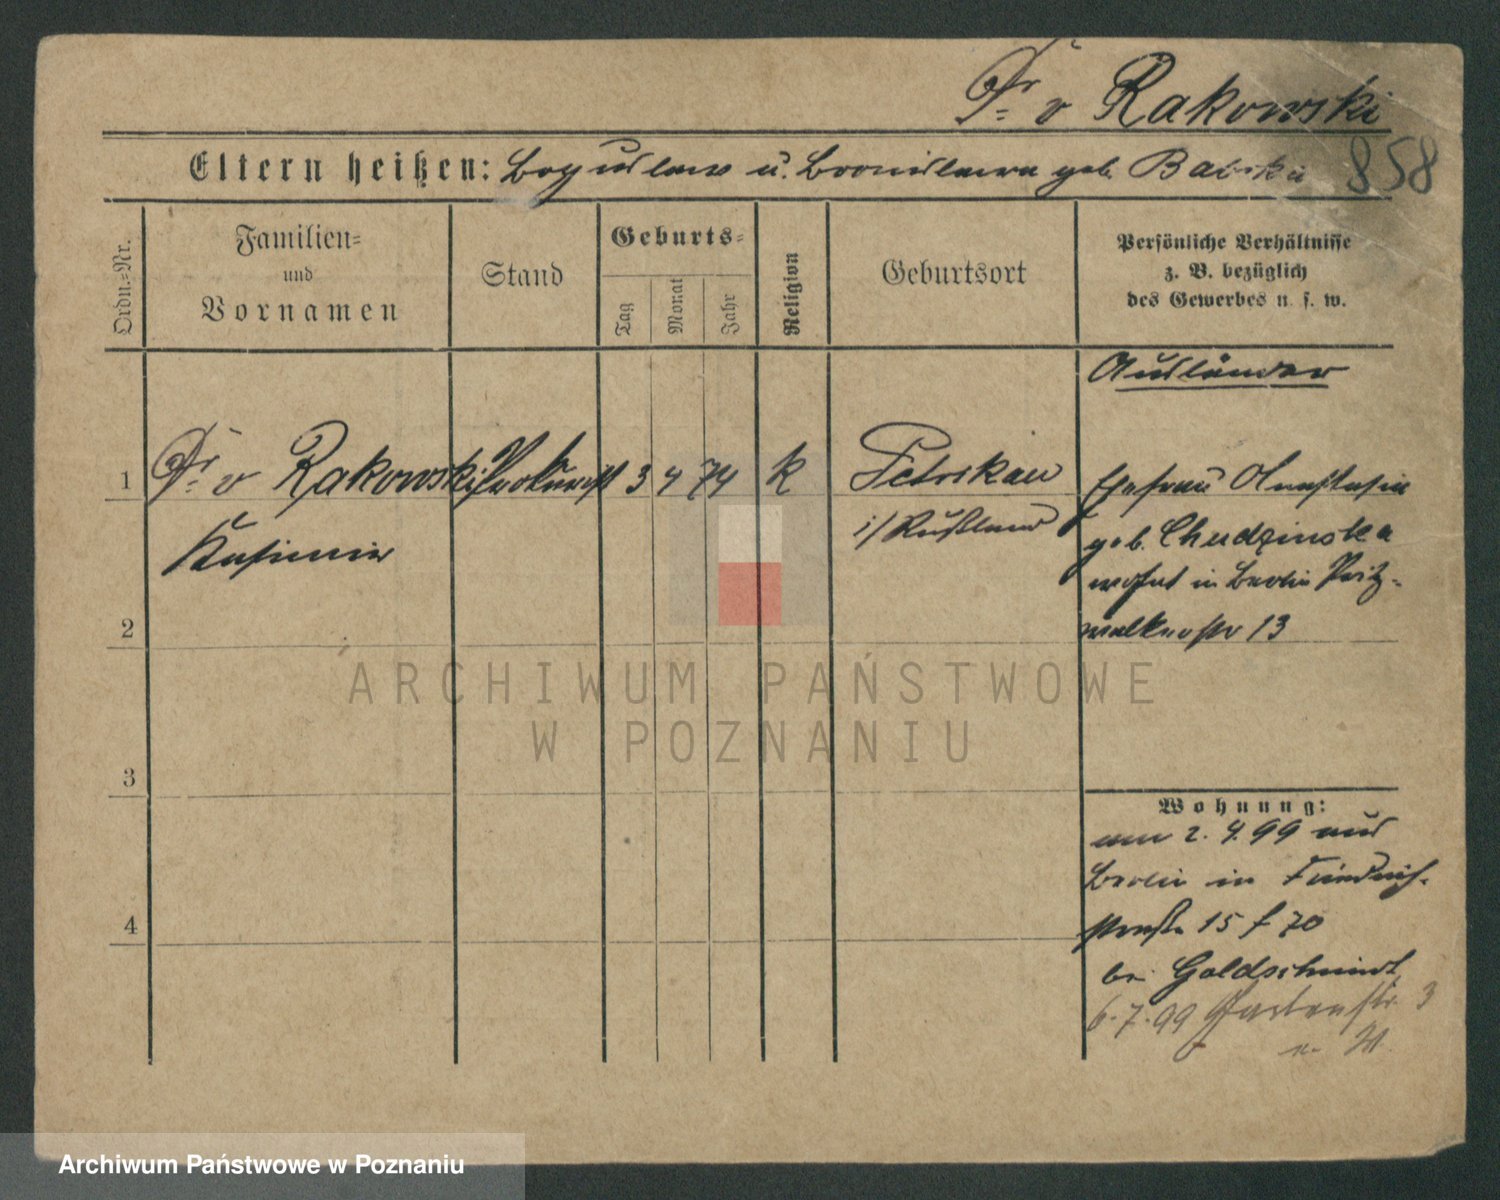 Dr. v Rakowski
858
Eltern heißen: Boguslaus u. Bronislawa geb. Babska
Ordn.=Nr.
Familien=
und
Vornamen
Stand
Geburts=
Tag
Monat
Jahr
Religion
Geburtsort
Persönliche Verhältnisse
z. B. bezüglich
des Gewerbes u. s. w.
Ausländer
1
Dr. v Rakowski
Kasimir
Prokurist
3 4 74
k
Petrikau
i/Rußland
Ehefrau Anastasia
geb. Chudzinska
wohnt in Berlin Pritz-
walkerstr 13
2
3
4
Wohnung:
am 2. 4. 99 aus
Berlin in Friedrich-
straße 15 f 70
bei Goldschmidt
6.7.99 Gartenstr. 3
ARCHIWUM PAŃSTWOWE
W POZNANIU
Archiwum Państwowe w Poznaniu